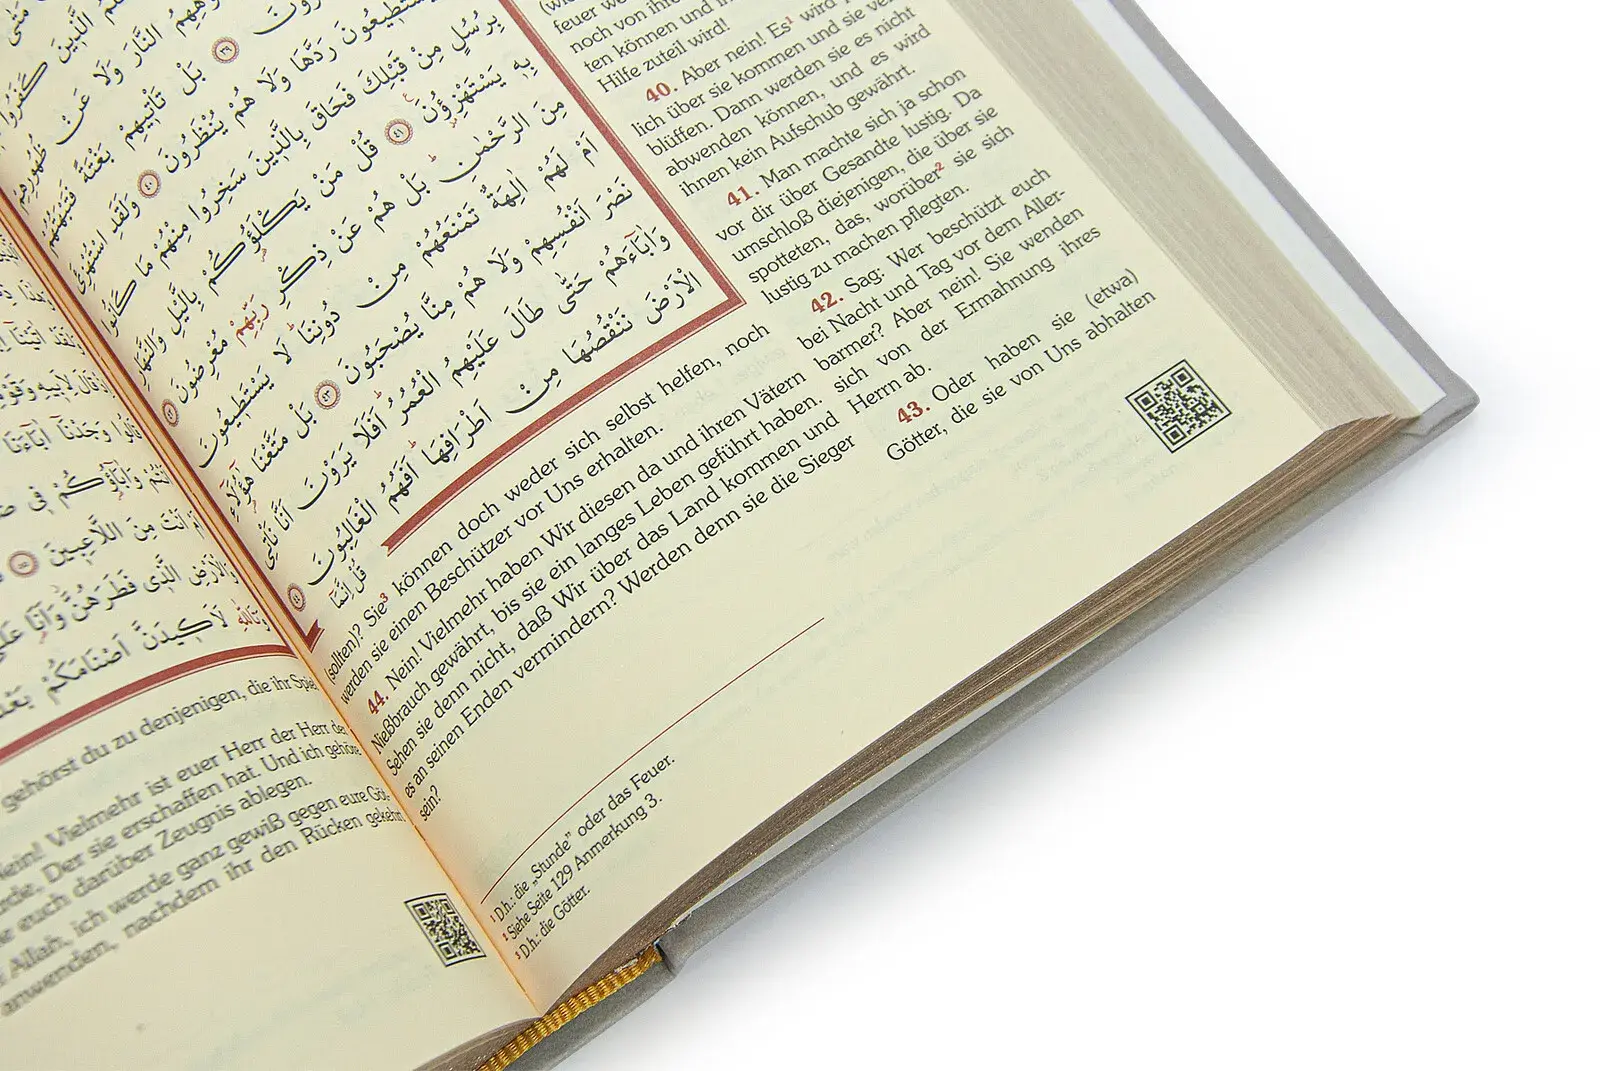 الَّذ۪ينَ كَفَرُوا
النَّارَ وَلَا عَنْ ظُهُورِهِمْ
﴿٣٩﴾ بَلْ تَأْت۪يهِمْ بَغْتَةً فَتَبْهَتُهُمْ
يَسْتَط۪يعُونَ رَدَّهَا وَلَا هُمْ يُنْظَرُونَ ﴿٤٠﴾ وَلَقَدِ اسْتُهْزِئَ
بِرُسُلٍ مِنْ قَبْلِكَ فَحَاقَ بِالَّذ۪ينَ سَخِرُوا مِنْهُمْ مَا كَانُوا
بِه۪ يَسْتَهْزِؤُ۫نَ ﴿٤١﴾ قُلْ مَنْ يَكْلَؤُ۬كُمْ بِالَّيْلِ وَالنَّهَارِ
مِنَ الرَّحْمٰنِ بَلْ هُمْ عَنْ ذِكْرِ رَبِّهِمْ مُعْرِضُونَ ﴿٤٢﴾
اَمْ لَهُمْ اٰلِهَةٌ تَمْنَعُهُمْ مِنْ دُونِنَا لَا يَسْتَط۪يعُونَ
نَصْرَ اَنْفُسِهِمْ وَلَا هُمْ مِنَّا يُصْحَبُونَ ﴿٤٣﴾ بَلْ مَتَّعْنَا هٰٓؤُ۬لَٓاءِ
وَاٰبَٓاءَهُمْ حَتّٰى طَالَ عَلَيْهِمُ الْعُمُرُ اَفَلَا يَرَوْنَ اَنَّا نَأْتِي
الْاَرْضَ نَنْقُصُهَا مِنْ اَطْرَافِهَا اَفَهُمُ الْغَالِبُونَ ﴿٤٤﴾
قُلْ اِنَّمَا
feuer
noch von ihre
ten können und
Hilfe zuteil wird!
40. Aber nein! Es¹ wird
lich über sie kommen und sie ver-
blüffen. Dann werden sie es nicht
abwenden können, und es wird
ihnen kein Aufschub gewährt.
41. Man machte sich ja schon
vor dir über Gesandte lustig. Da
umschloß diejenigen, die über sie
spotteten, das, worüber² sie sich
lustig zu machen pflegten.
42. Sag: Wer beschützt euch
bei Nacht und Tag vor dem Aller-
barmer? Aber nein! Sie wenden
sich von der Ermahnung ihres
Herrn ab.
43. Oder haben sie (etwa)
Götter, die sie von Uns abhalten
(sollten)? Sie³ können doch weder sich selbst helfen, noch
werden sie einen Beschützer vor Uns erhalten.
44. Nein! Vielmehr haben Wir diesen da und ihren Vätern
Nießbrauch gewährt, bis sie ein langes Leben geführt haben.
Sehen sie denn nicht, daß Wir über das Land kommen und
es an seinen Enden vermindern? Werden denn sie die Sieger
sein?
¹ D.h.: die „Stunde" oder das Feuer.
² Siehe Seite 129 Anmerkung 3.
³ D.h.: die Götter.
قَالُوا وَجَدْنَٓا اٰبَٓاءَنَا
وَاٰبَٓاؤُ۬كُمْ ف۪ي
اَمْ اَنْتَ مِنَ اللَّاعِب۪ينَ ﴿٥٥﴾
وَالْاَرْضِ الَّذ۪ي فَطَرَهُنَّ وَاَنَا۬
وَتَاللّٰهِ لَاَك۪يدَنَّ اَصْنَامَكُمْ بَعْدَ
gehörst du zu denjenigen, die ihr Spiel
Nein! Vielmehr ist euer Herr der Herr de
rde, Der sie erschaffen hat. Und ich gehöre
e euch darüber Zeugnis ablegen.
Allah, ich werde ganz gewiß gegen eure Göt-
anwenden, nachdem ihr den Rücken gekehrt